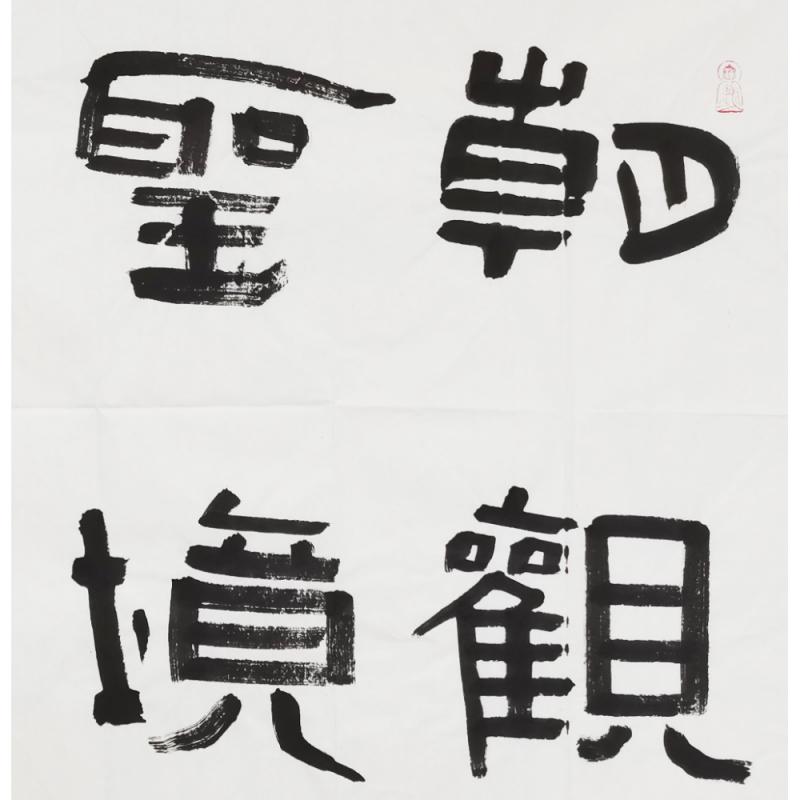 朝觀
聖境